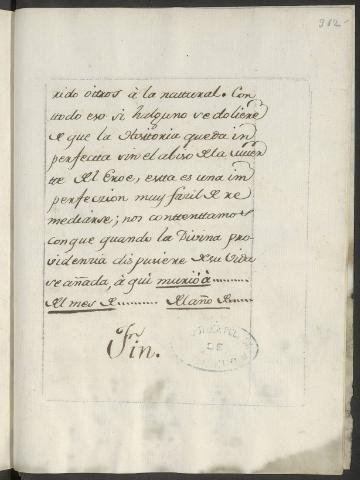 312
rido òtros à la natural. Con
todo eso si halguno se doliere
de que la Historia queda in
perfecta sin el abiso de la muer
te del Eroe, esta es una im
perfeczion muy fazil de re
mediarse; nos contentamos
con que quando la Divina pro-
videnzia dispusiere de su Vida
se añada, à qui murió à...........
del mes de.......... del año de......
Fin.
DE